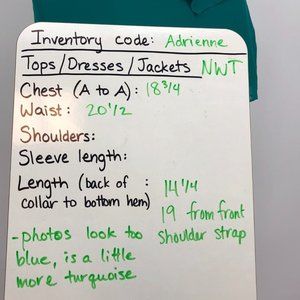 Inventory code: Adrienne
Tops/Dresses/Jackets NWT
Chest (A to A): 18 3/4
Waist: 20 1/2
Shoulders:
Sleeve length:
Length (back of : 14 1/4
collar to bottom hem) 19 from front
shoulder strap
-photos look too
blue, is a little
more turquoise